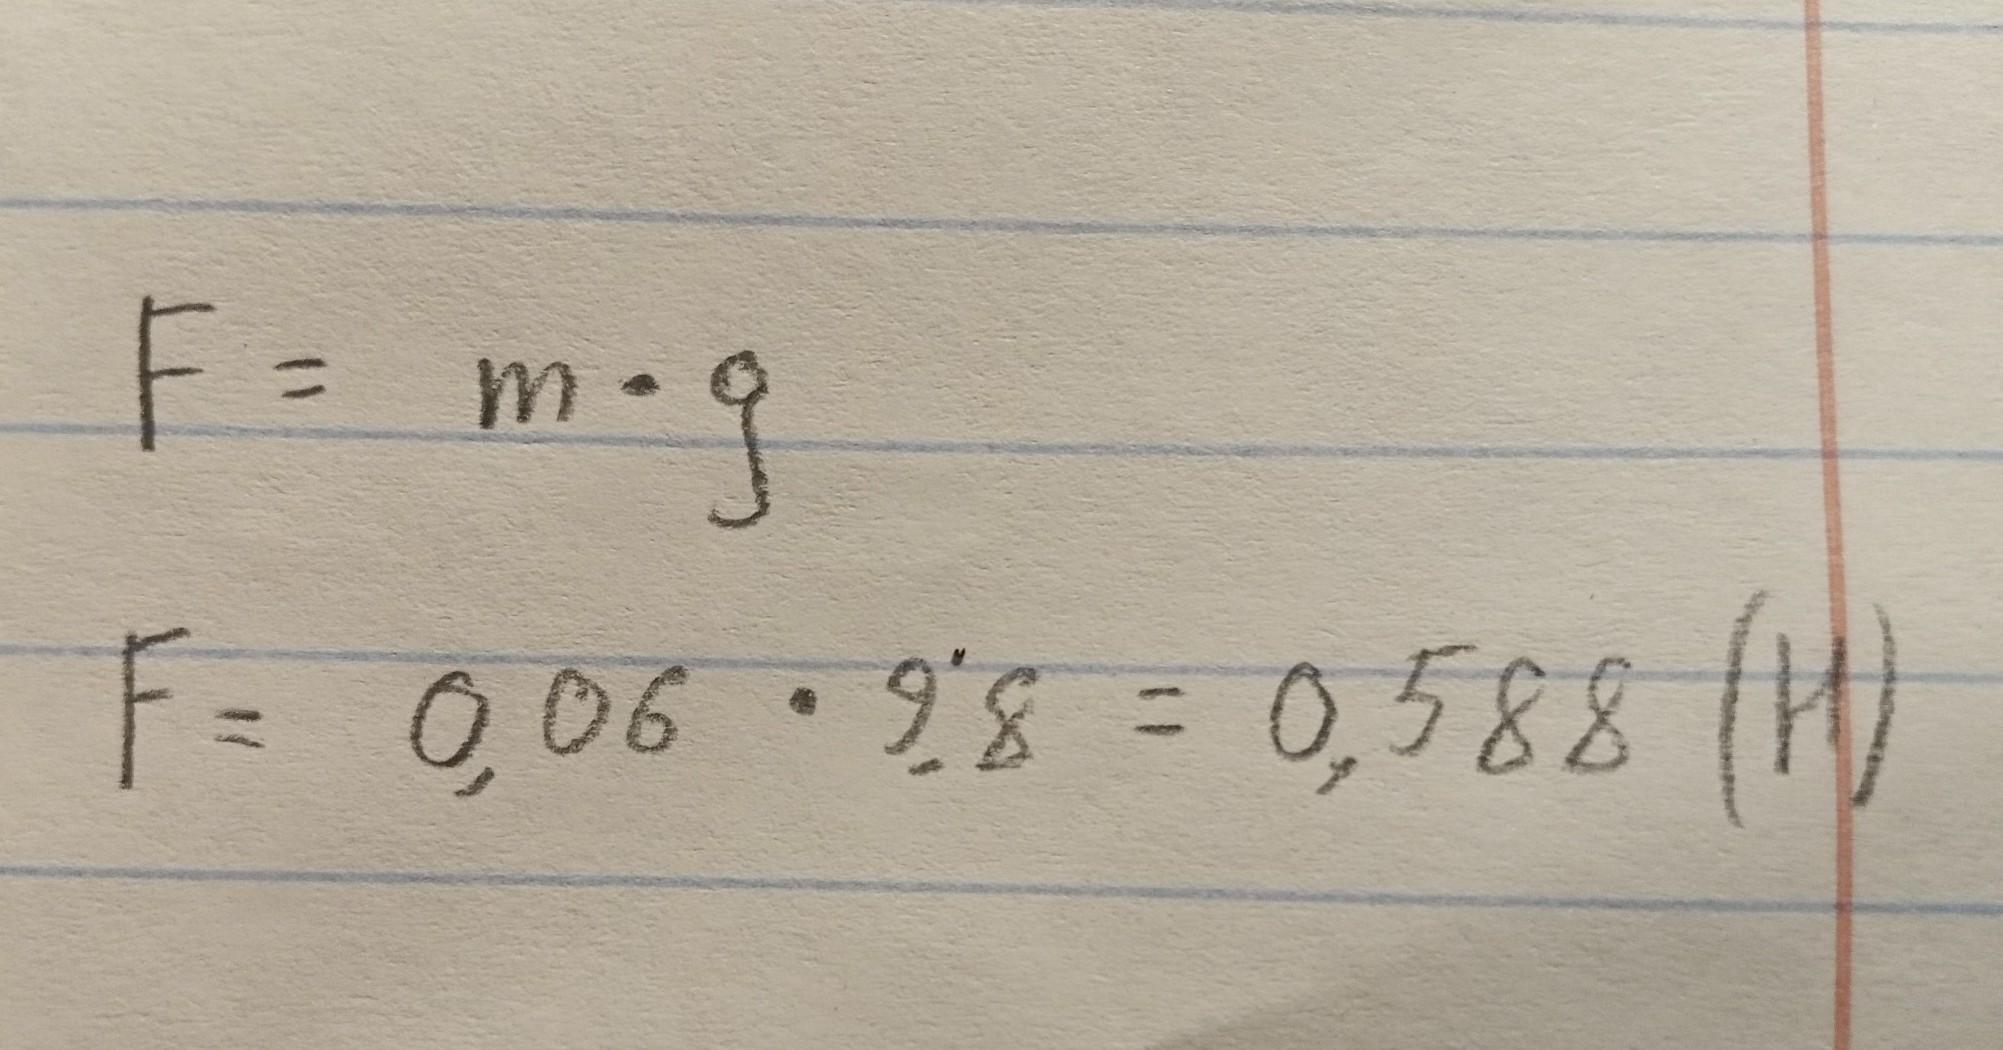 F = m · g
F = 0,06 · 9,8 = 0,588 (Н)